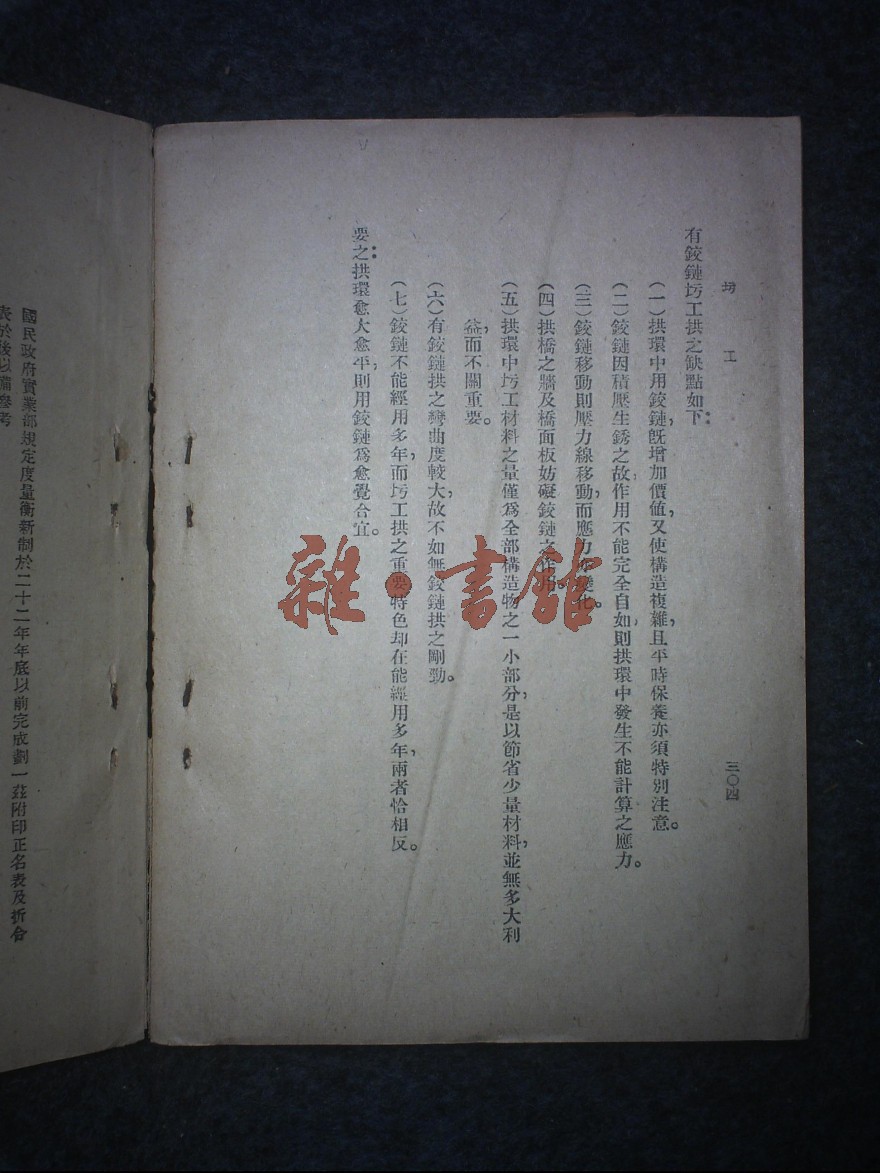 圬工
三〇四
有鉸鏈圬工拱之缺點如下：
（一）拱環中用鉸鏈，旣增加價値，又使構造複雜，且平時保養亦須特別注意。
（二）鉸鏈因積壓生銹之故，作用不能完全自如，則拱環中發生不能計算之應力。
（三）鉸鏈移動則壓力線移動，而應力亦變化。
（四）拱橋之牆及橋面板妨礙鉸鏈之作用。
（五）拱環中圬工材料之量僅爲全部構造物之一小部分，是以節省少量材料，並無多大利
益，而不關重要。
（六）有鉸鏈拱之彎曲度較大，故不如無鉸鏈拱之剛勁。
（七）鉸鏈不能經用多年，而圬工拱之重要特色却在能經用多年，兩者恰相反。
要之：拱環愈大愈平，則用鉸鏈爲愈覺合宜。
國民政府實業部規定度量衡新制於二十二年年底以前完成劃一茲附印正名表及折合
表於後以備參考
雜·書館